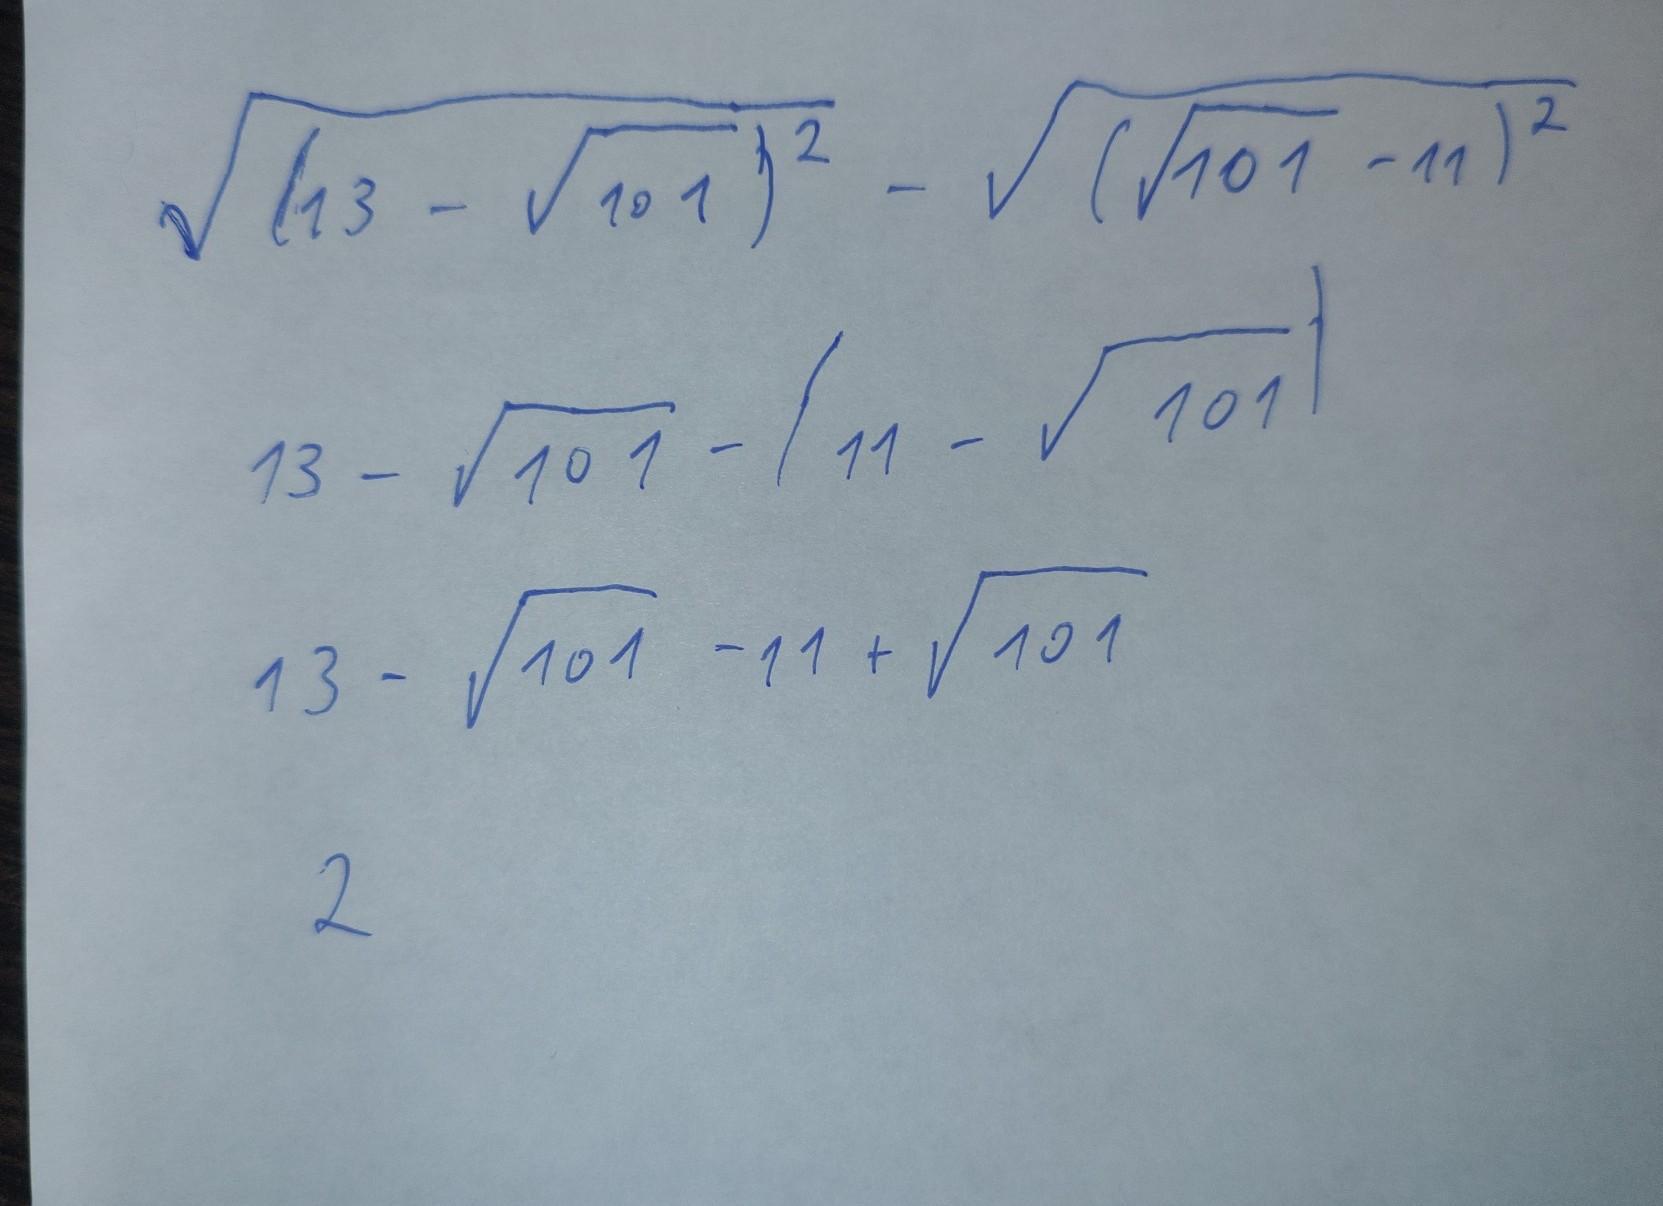 √(13 - √101)² - √(√101 - 11)²
13 - √101 - (11 - √101)
13 - √101 - 11 + √101
2